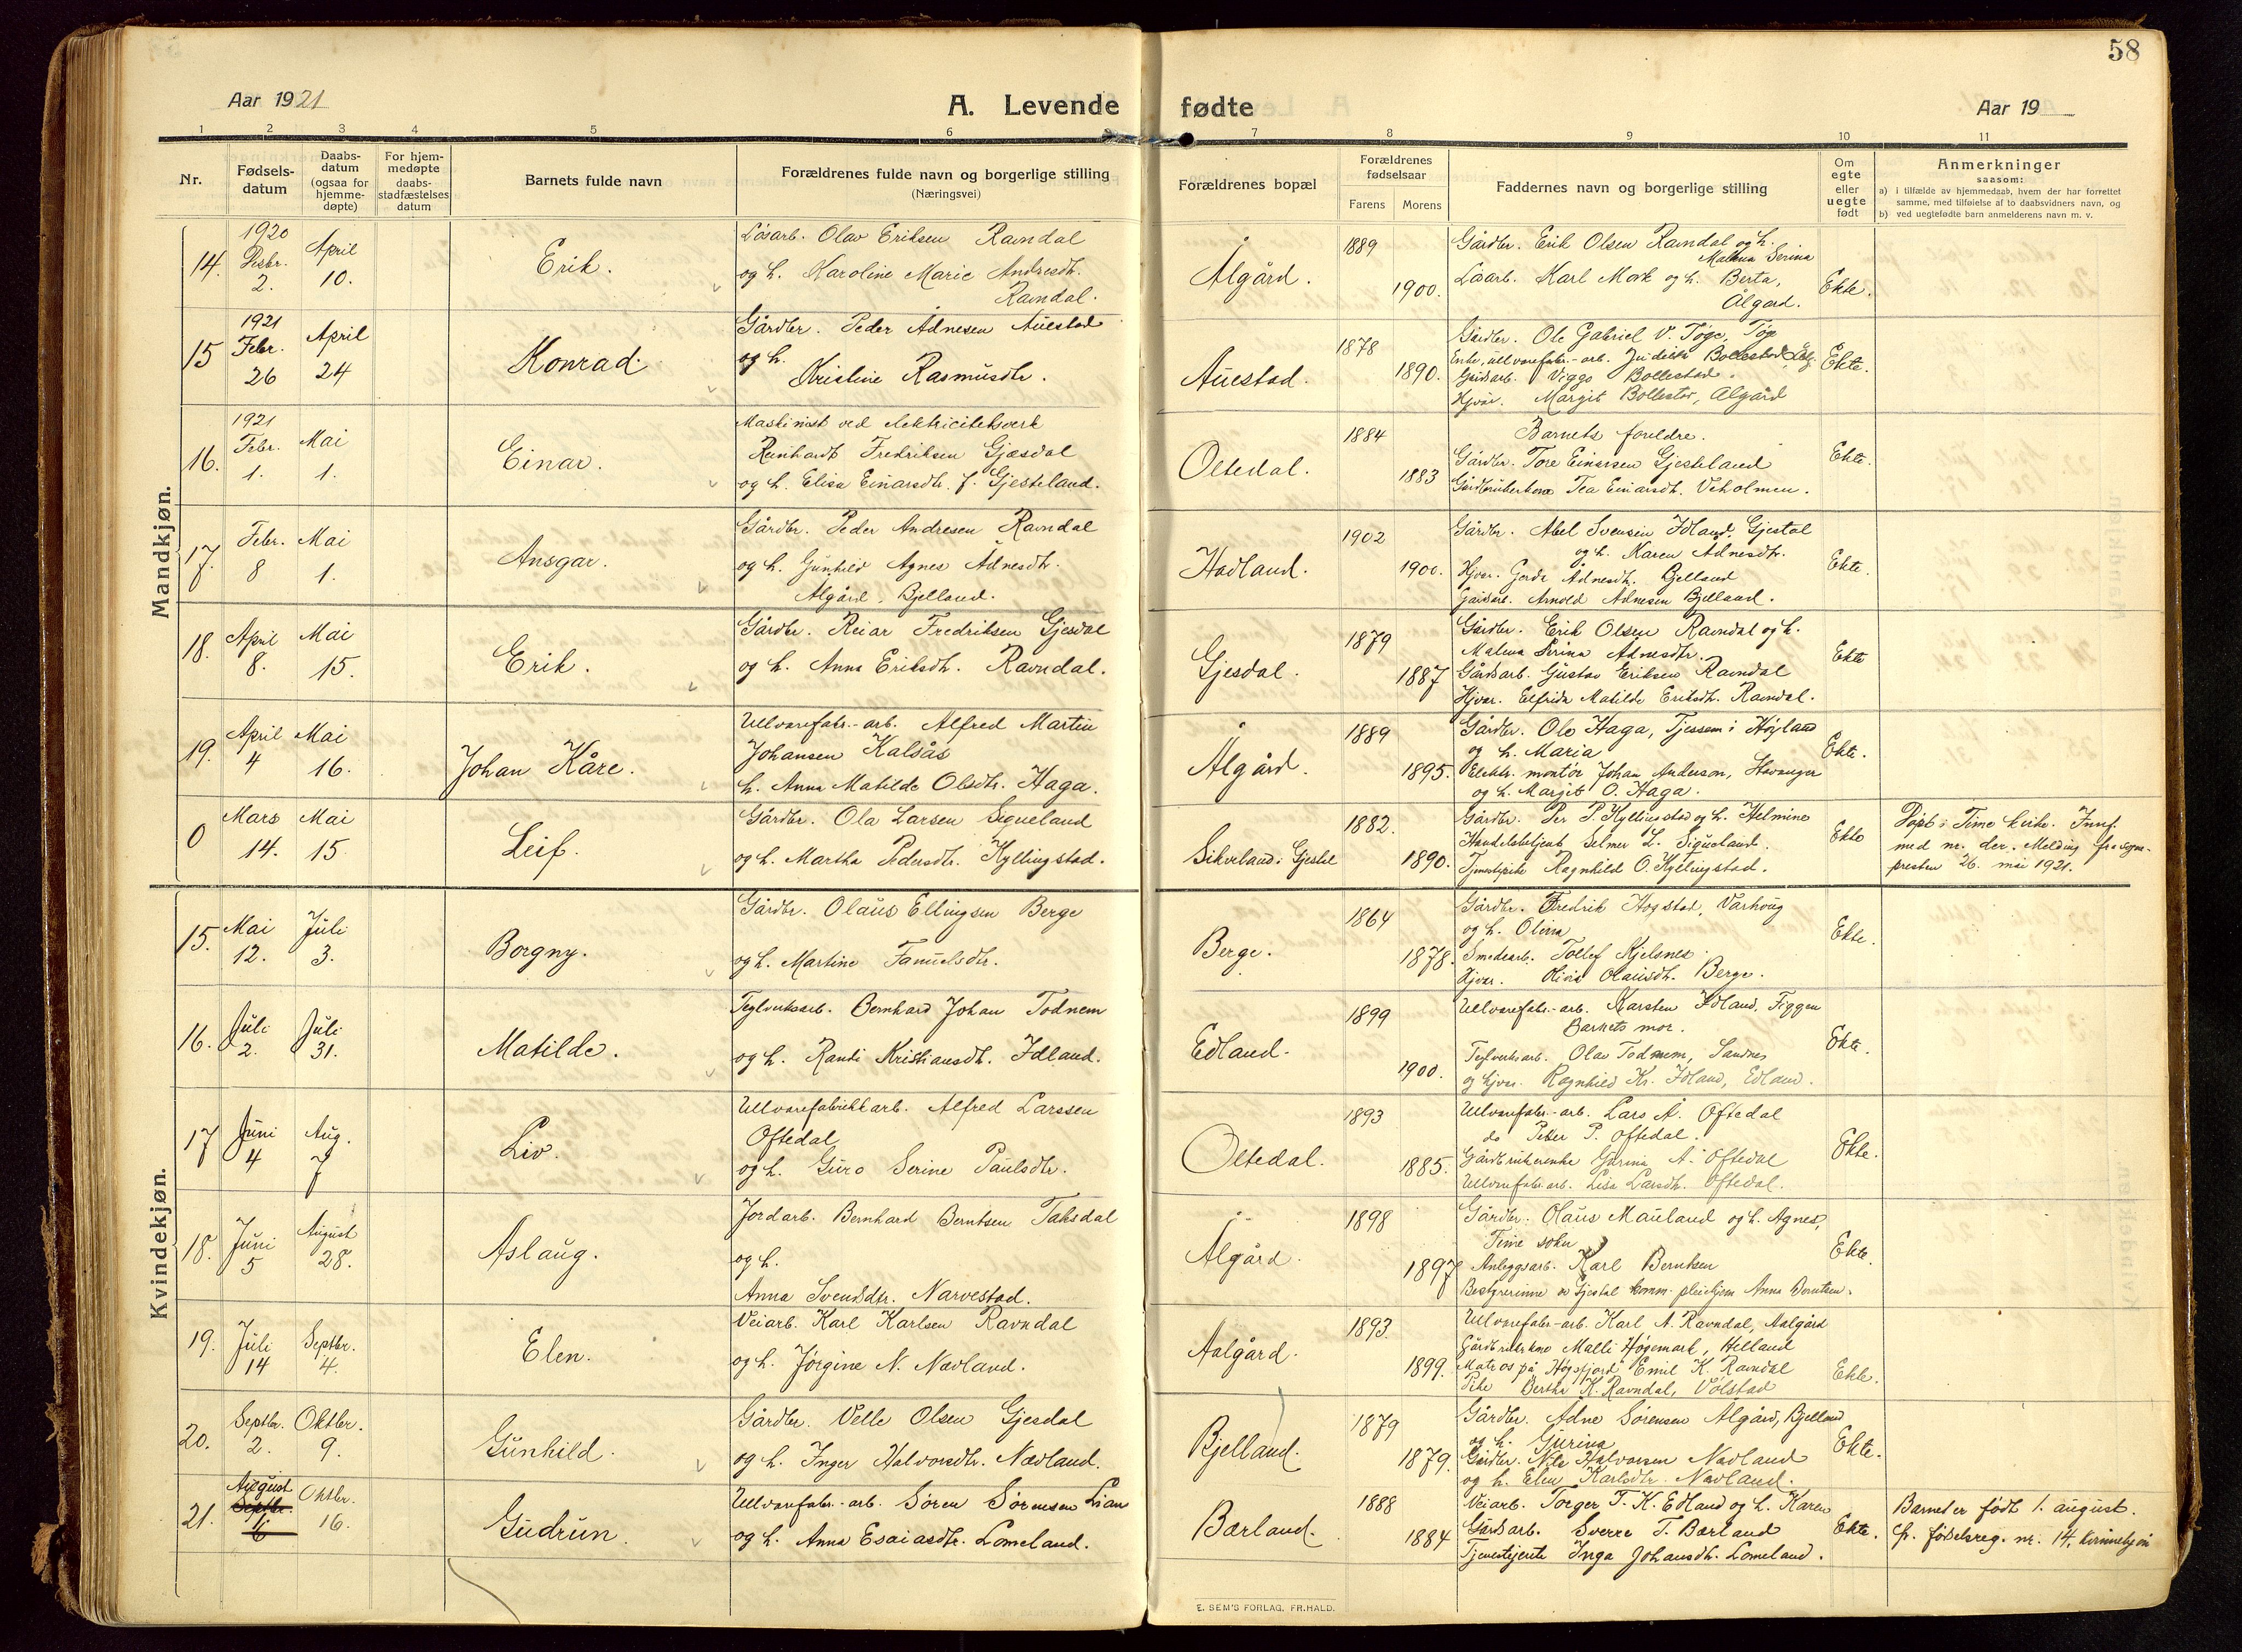 58
Aar 1921
A. Levende fødte
Aar 19
1 2 3 4 5 6 7 8 9 10 11
Nr.
Fødsels-
datum
Daabs-
datum
(ogsaa for
hjemme-
døpte)
For hjem-
medøpte
daabs-
stadfæstelses
datum
Barnets fulde navn
Forældrenes fulde navn og borgerlige stilling
(Næringsvei)
Forældrenes bopæl
Forældrenes
fødselsaar
Farens Morens
Faddernes navn og borgerlige stilling
Om
egte
eller
uegte
født
Anmerkninger
saasom:
a) i tilfælde av hjemmedaab, hvem der har forrettet
samme, med tilføielse af to daabsvidners navn, og
b) ved uegtefødte barn anmelderens navn m. v.
Mandkjøn.
14.
1920
Desbr.
2.
April
10.
Erik.
Løsarb. Olav Eriksen Ravndal
og h. Karoline Marie Andresdtr.
Ravndal.
Ålgård.
1889
1900.
Gårdbr. Erik Olsen Ravndal og h.
Malena Serina
Karl Mork og h. Berta,
Ålgard.
Ekte.
15
1921
Febr.
26
April
24
Konrad.
Gårdbr. Peder Ådnesen Auestad
og h.
Kristine Rasmusdtr.
Auestad.
1878
1890.
Gårdbr. Ole Gabriel V. Tøge, Tøge
Enke, ullvarefabr.-arb. Bollestad,
Gårdsarb. Viggo Bollestad.
Hjvær. Margit Bollestad, Ålgård
Ekte.
16.
1921
Febr.
1.
Mai
1.
Einar.
Maskinist ved elektricitetsverk
Reinhardt Fredriksen Gjesdal
og h. Elisa Einarsdtr. f. Gjesteland.
Oltedal.
1884
1883
Barnets foreldre.
Gårdbr. Tore Einarsen Gjesteland
Tea Einarsdtr. Veholmen.
Ekte.
17.
Febr.
8
Mai
1.
Ansgar.
Gårdbr. Peder Andresen Ravndal
og h. Gunhild Agnes Ådnesdtr.
Ålgård, Bjelland.
Hadland.
1902
1900.
Gårdbr. Abel Svensen Idland, Gjestal
og h. Karen Ådnesdtr.
Hjvær. Gerda Ådnesdtr. Bjelland
Gårdsarb. Arnold Ådnesen Bjelland.
Ekte.
18.
April
8.
Mai
15.
Erik.
Gårdbr. Reiar Fredriksen Gjesdal
og h. Anna Eriksdtr. Ravndal.
Gjesdal.
1879
1887
Gårdbr. Erik Olsen Ravndal og h.
Malena Serina Ådnesdtr.
Gårdsarb. Gustav Eriksen Ravndal
Hjvær. Elfrida Matilde Eriksdtr. Ravndal.
Ekte
19.
April
4
Mai
16.
Johan Kåre.
Ullvarefabr.-arb. Alfred Martin
Johansen Kalsås
h. Anna Matilde Olsdtr. Haga.
Ålgård.
1889
1895.
Gårdbr. Ole Haga, Tjessem i Høyland
og h. Maria
Elektr. montør Johan Anderson, Stavanger
og h. Margit O. Haga.
Ekte.
0
Mars
14.
Mai
15
Leif.
Gårdbr. Ola Larsen Sigveland
og h. Martha Pedersdtr. Kyllingstad.
Sikveland i Gjestal
1882.
1890.
Gårdbr. Per P. Kyllingstad og h. Helmine
Handelsbetjent Selmer L. Sigveland.
Tjenestepike Ragnhild O. Kyllingstad.
Ekte
Døpt i Time kirke. Innf.
med nr. der. Melding fra sogne-
presten 26. mai 1921.
Kvindekjøn.
15.
Mai
12.
Juli
3.
Borgny.
Gårdbr. Olaus Ellingsen Berge
og h. Martine Tanuelsdtr.
Berge.
1864
1878.
Gårdbr. Fredrik Hogstad, Varhoug
og h. Olina
Smedarb. Tollef Kjelsnes
Hjvær. Olivia Olausdtr. Berge.
Ekte.
16.
Juli
2.
Juli
31.
Matilde.
Teglverksarb. Bernhard Johan Todnem
og h. Randi Kristiansdtr. Idland.
Edland.
1899
1900.
Ullvarefabr.-arb. Karsten Idland, Figgen
Barnets mor.
Teglverksarb. Olav Todnem, Sandnes
og hjvær. Ragnhild Kr. Idland, Edland.
Ekte.
17
Juni
4
Aug.
7
Liv.
Ullvarefabrikkarb. Alfred Larssen
Oftedal
og h. Guro Serine Paulsdtr.
Oltedal.
1893
1885.
Ullvarefabr.-arb. Lars A. Oftedal
do Peter P. Oftedal.
Gårdbrukerenke Gurina A. Oftedal
Ullvarefabr.arb. Lisa Larsdtr. Oftedal.
Ekte.
18.
Juni
5
August
28.
Aslaug.
Jordarb. Bernhard Berntsen Taksdal
og h.
Anna Svendsdtr. Narvestad.
Ålgård.
1898
1897
Gårdbr. Olaus Mauland og h. Agnes,
Time sokn
Anleggsarb. Karl Berntsen
Bestyrerinne av Gjestal komm. pleiehjem Anna Berntsen.
Ekte.
19.
Juli
14
Septbr.
4.
Elen.
Veiarb. Karl Karlsen Ravndal
og h. Jørgine N. Nævland.
Aalgård.
1893.
1899.
Ullvarefabr-arb. Karl A. Ravndal, Aalgård
Gårdbrukerkone Malli Høgemark, Helland
Matros på "Høgsfjord" Emil K. Ravndal
Pike Bertha K. Ravndal, Volstad
Ekte.
20.
Septbr.
2.
Oktbr.
9.
Gunhild.
Gårdbr. Velle Olsen Gjesdal
og h. Inger Halvorsdtr. Nævland.
Bjelland.
1879
1879.
Gårdbr. Ådne Sørensen Ålgård, Bjelland
og h. Gurina
Gårdbr. Nils Halvorsen Nævland
og h. Elen Karlsdtr. Nævland.
Ekte.
21.
August
Septbr.
Oktbr.
16.
Gudrun.
Ullvarefabr.-arb. Søren Sørensen Lian
og h. Anna Esaiasdtr. Lomeland.
Bærland.
1888
1884
Veiarb. Torger T. K. Edland og h. Karen
Gårdsarb. Sverre T. Bærland
Tjenestejente Inga Johansdtr. Lomeland.
Ekte.
Barnet er født 1. august.
fødselsreg. nr. 14, kvinnekjøn
E. SEM'S FORLAG. FR.HALD.